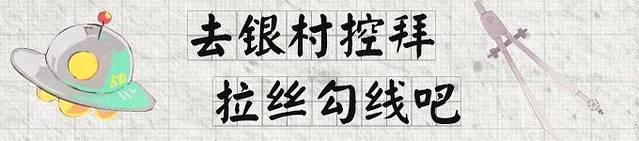 去银村控拜
拉丝勾线吧